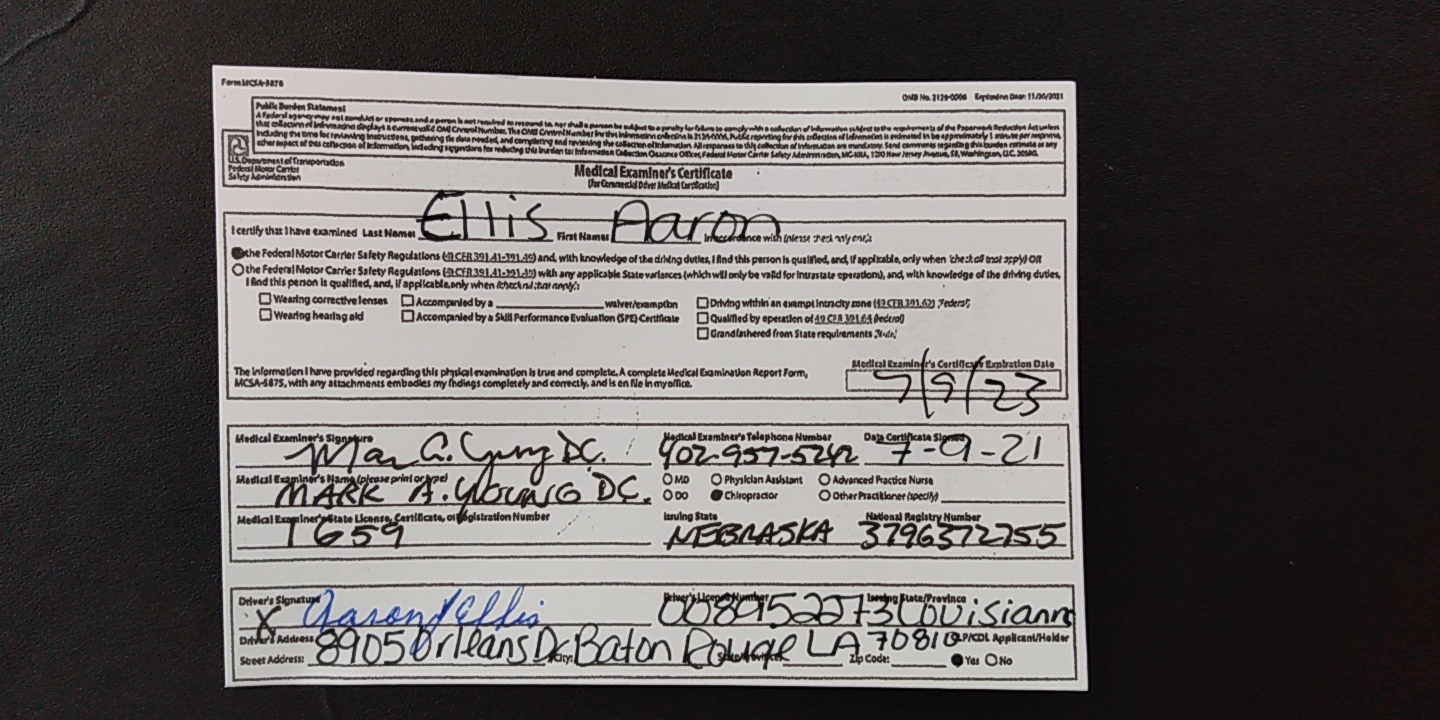 Form MCSA-5876
OMB No. 2126-0006 Expiration Date: 11/30/2021
Public Burden Statement
A Federal agency may not conduct or sponsor, and a person is not required to respond to, nor shall a person be subject to a penalty for failure to comply with a collection of information subject to the requirements of the Paperwork Reduction Act unless
that collection of information displays a current valid OMB Control Number. The OMB Control Number for this information collection is 2126-0006. Public reporting for this collection of information is estimated to be approximately 1 minute per response,
including the time for reviewing instructions, gathering the data needed, and completing and reviewing the collection of information. All responses to this collection of information are mandatory. Send comments regarding this burden estimate or any
other aspect of this collection of information, including suggestions for reducing this burden to: Information Collection Clearance Officer, Federal Motor Carrier Safety Administration, MC-RRA, 1200 New Jersey Avenue, SE, Washington, D.C. 20590.
U.S. Department of Transportation
Federal Motor Carrier
Safety Administration
Medical Examiner's Certificate
(for Commercial Driver Medical Certification)
I certify that I have examined Last Name: Ellis First Name: Aaron in accordance with (please check only one):
the Federal Motor Carrier Safety Regulations (49 CFR 391.41-391.49) and, with knowledge of the driving duties, I find this person is qualified, and, if applicable, only when (check all that apply) OR
the Federal Motor Carrier Safety Regulations (49 CFR 391.41-391.49) with any applicable State variances (which will only be valid for intrastate operations), and, with knowledge of the driving duties,
I find this person is qualified, and, if applicable, only when (check all that apply):
Wearing corrective lenses Accompanied by a waiver/exemption Driving within an exempt intracity zone (49 CFR 391.62) (Federal)
Wearing hearing aid Accompanied by a Skill Performance Evaluation (SPE) Certificate Qualified by operation of 49 CFR 391.64 (Federal)
Grandfathered from State requirements (State)
The information I have provided regarding this physical examination is true and complete. A complete Medical Examination Report Form,
MCSA-5875, with any attachments embodies my findings completely and correctly, and is on file in my office.
Medical Examiner's Certificate Expiration Date
7/9/23
Medical Examiner's Signature Medical Examiner's Telephone Number Date Certificate Signed
Mark A. Young DC. 402-957-5242 7-9-21
Medical Examiner's Name (please print or type) MD Physician Assistant Advanced Practice Nurse
MARK A. YOUNG DC. DO Chiropractor Other Practitioner (specify)
Medical Examiner's State License, Certificate, or Registration Number Issuing State National Registry Number
1659 NEBRASKA 3796372755
Driver's Signature Driver's License Number Issuing State/Province
X Aaron J Ellis 008952273 Louisiann
Driver's Address CLP/CDL Applicant/Holder
Street Address: 8905 Orleans Dr City: Baton Rouge State/Province: LA Zip Code: 70810 Yes No